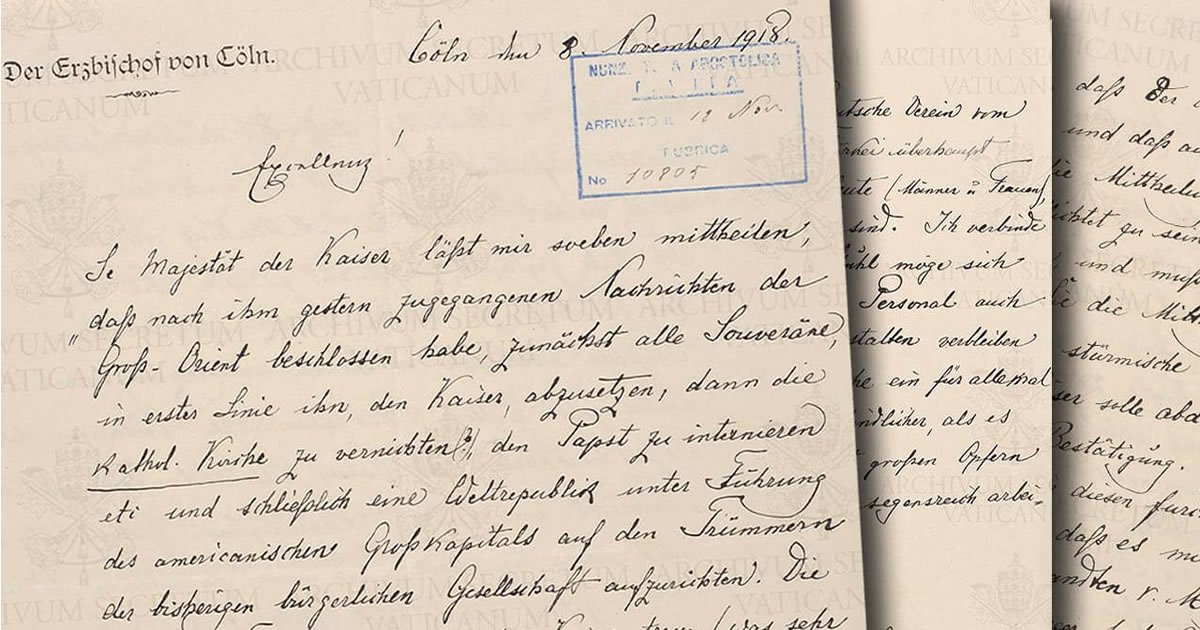 Der Erzbischof von Cöln.
Cöln den 8. November 1918.
NUNZ. APOSTOLICA
ARRIVATO IL 12 Nov
RUBRICA
No. 10805
Excellenz!
Se Majestät der Kaiser läßt mir soeben mittheilen,
daß nach ihm gestern zugegangenen Nachrichten der
"Groß-Orient beschlossen habe, zunächst alle Souveräne,
in erster Linie ihn, den Kaiser, abzusetzen, dann die
kathol. Kirche zu vernichten(?), den Papst zu internieren
etc und schließlich eine Weltrepublik unter Führung
des americanischen Großkapitals auf den Trümmern
der bisherigen bürgerlichen Gesellschaft aufzurichten. Die
(was sehr
utsche Verein vom
überhaupt
(Männer u Frauen)
sind. Ich verbinde
möge sich
Personal auch
stalten verbleiben
he ein für allemal
ndlicher, als es
großen Opfern
segensreich arbei-
daß der
und daß
die Mittheilu
chtet zu sein
und muß
die Mitt
stürmische
ser solle abd
Bestätigung.
diesen furc
daß es
andten v.
ARCHIVUM SECRETUM
VATICANUM